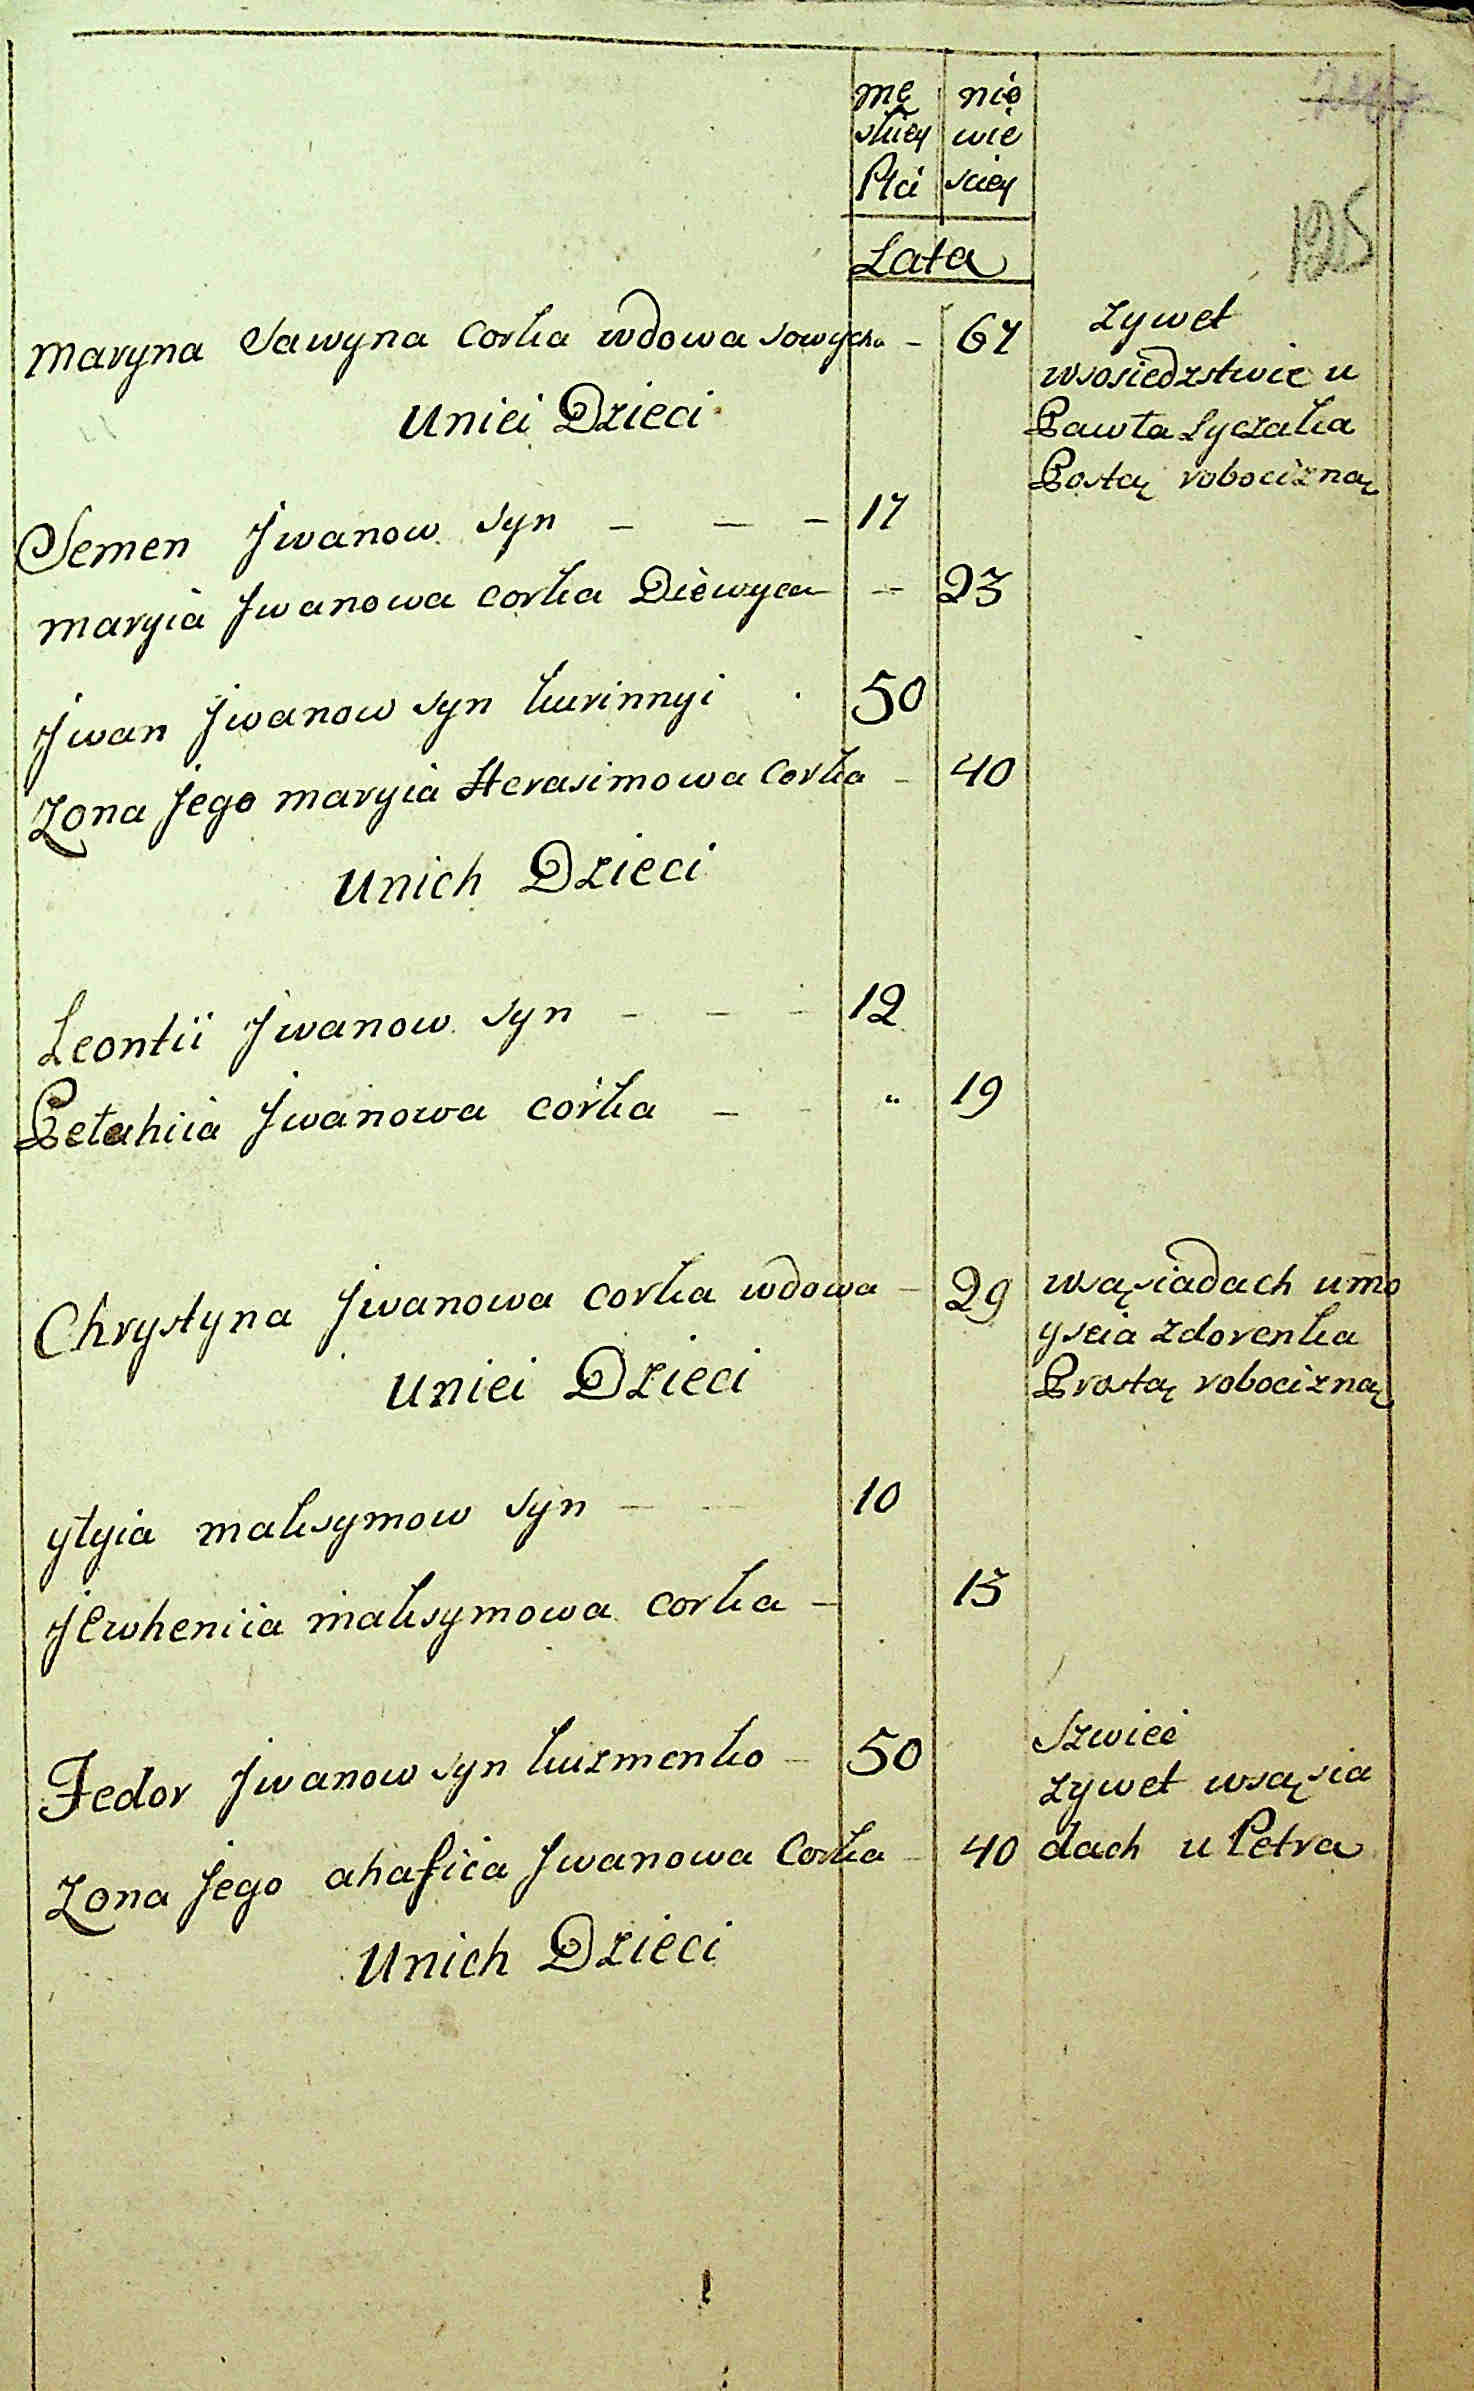 mę nie
skiey wie
Płci sciey
Lata
125
Maryna Sawyna Corka wdowa Sowycha - 67 zywet
wsosiedzstwie u
Uniei Dzieci Pawła Lyczaka
Postą robocizną
Semen Jwanow Syn - - - 17
Maryia Jwanowa Corka Diewyca - 23
Jwan Jwanow Syn kurinnyi . 50
Zona Jego Maryia Herasimowa Corka - 40
Unich Dzieci
Leontii Jwanow Syn - - - 12
Pełahiia Jwanowa Corka - - " 19
Chrystyna Jwanowa Corka wdowa - 29 wsąsiadach u mo
yseia zdorenka
Uniei Dzieci Prostą robocizną
yłyia Maksymow Syn - - 10
Jewheniia Maksymowa Corka - 13
Fedor Jwanow Syn kuzmenko - 50 Szwiec
zywet wsąsia
Zona Jego ahafiia Jwanowa Corka - 40 dach u Petra
Unich Dzieci